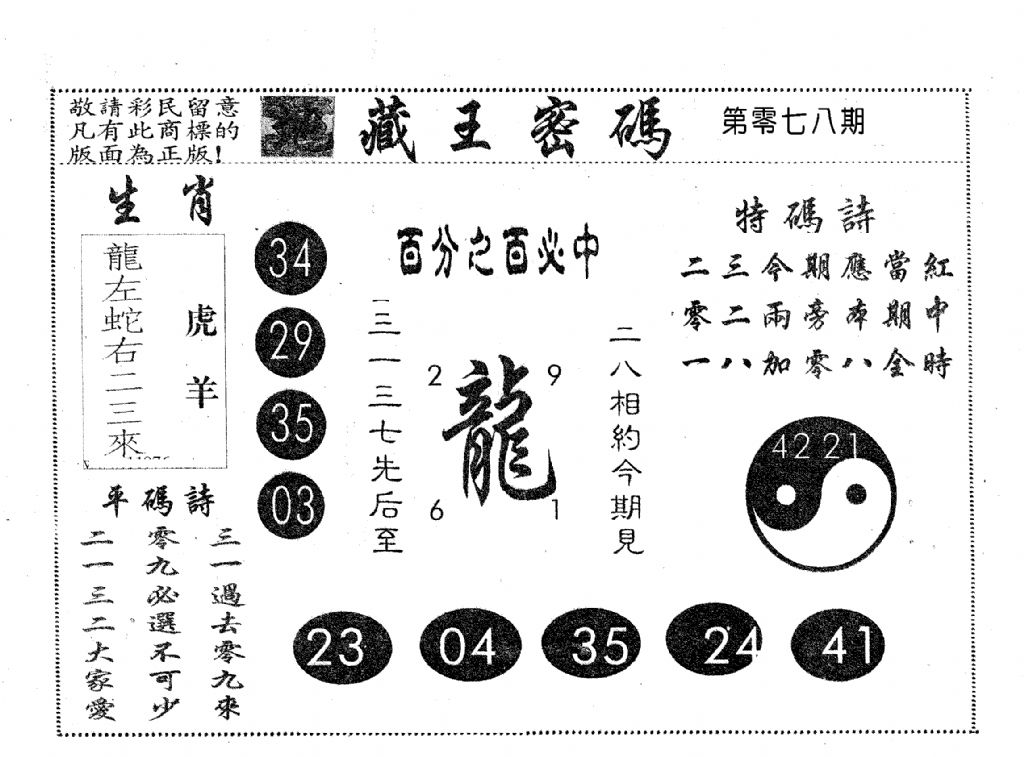 敬請彩民留意
凡有此商標的
版面為正版!
地藏王密碼
第零七八期
生肖
龍左蛇右二三來
虎羊
34
29
35
03
百分之百必中
二三一三七先后至
2
9
龍
6
1
二八相約今期見
特碼詩
二三今期應當紅
零二兩旁本期中
一八加零八金時
42 21
平碼詩
三一過去零九來
零九必選不可少
二一三二大家愛
23
04
35
24
41